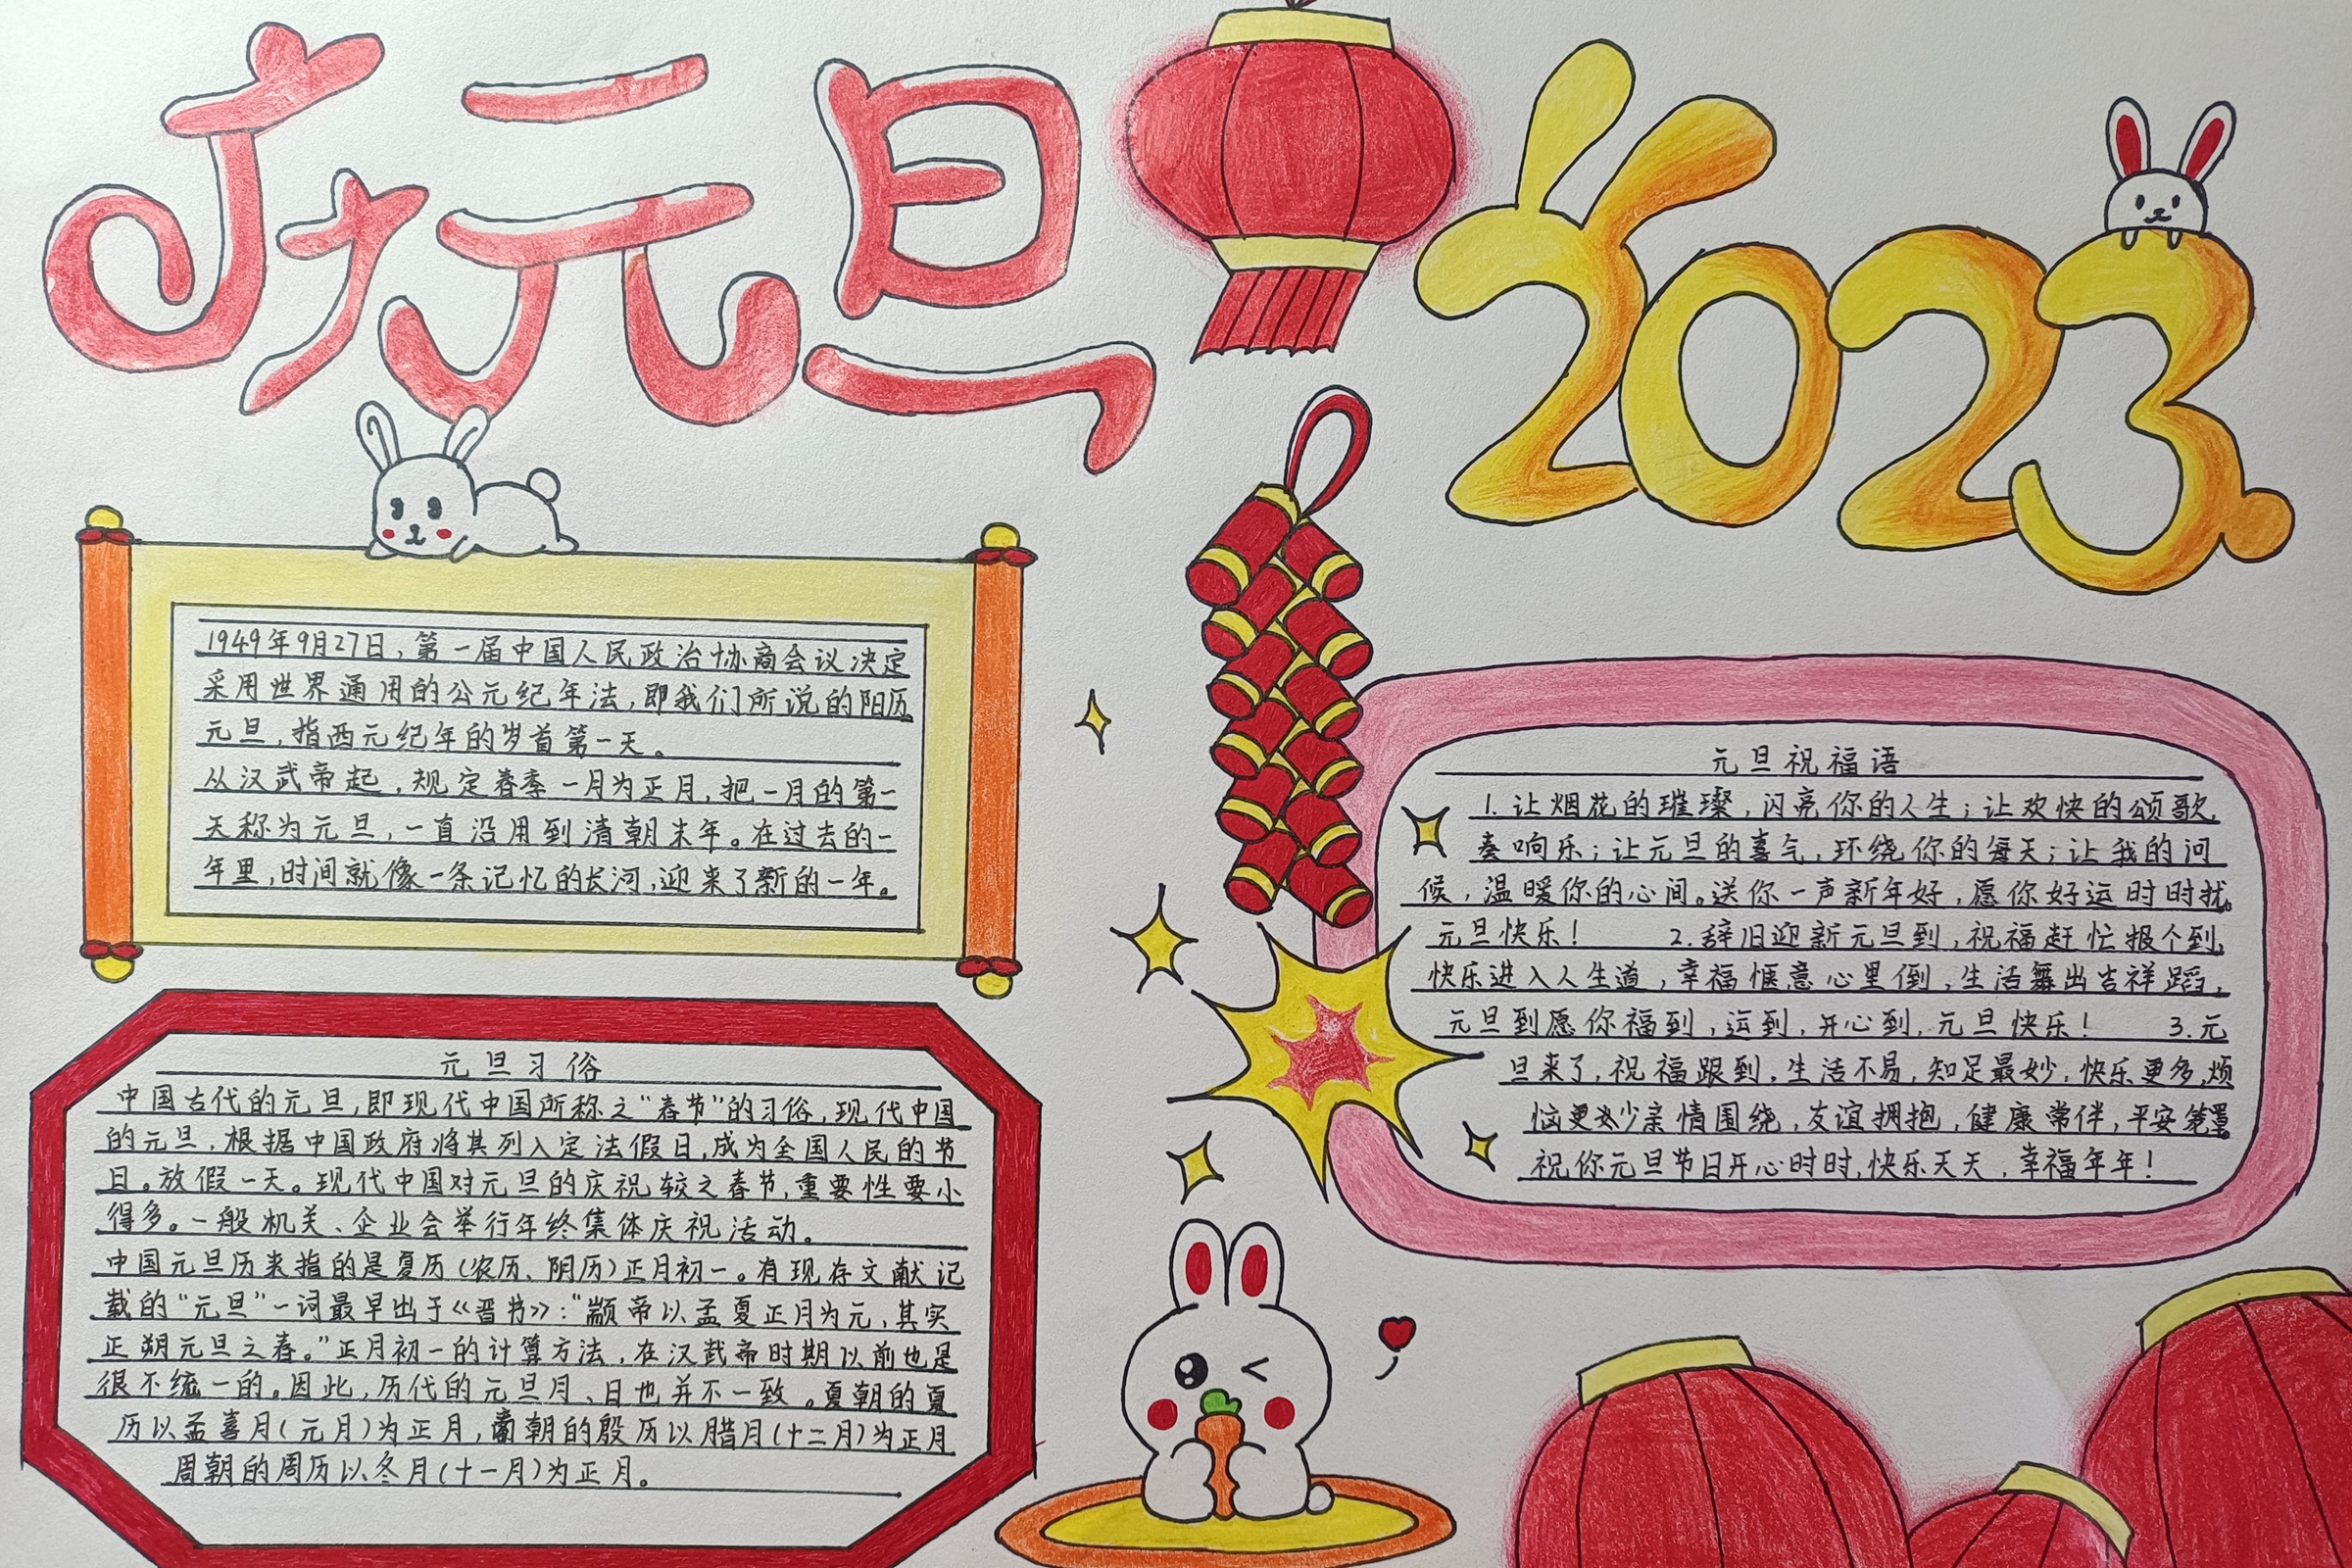 庆元旦
2023
1949年9月27日,第一届中国人民政治协商会议决定
采用世界通用的公元纪年法,即我们所说的阳历
元旦,指西元纪年的岁首第一天。
从汉武帝起,规定春季一月为正月,把一月的第一
天称为元旦,一直沿用到清朝末年。在过去的一
年里,时间就像一条记忆的长河,迎来了新的一年。
元旦习俗
中国古代的元旦,即现代中国所称之"春节"的习俗,现代中国
的元旦,根据中国政府将其列入定法假日,成为全国人民的节
日。放假一天。现代中国对元旦的庆祝较之春节,重要性要小
得多。一般机关、企业会举行年终集体庆祝活动。
中国元旦历来指的是夏历(农历、阴历)正月初一。有现存文献记
载的"元旦"一词最早出于《晋书》:"颛帝以孟夏正月为元,其实
正朔元旦之春。"正月初一的计算方法,在汉武帝时期以前也是
很不统一的。因此,历代的元旦月、日也并不一致。夏朝的夏
历以孟喜月(元月)为正月,商朝的殷历以腊月(十二月)为正月
周朝的周历以冬月(十一月)为正月。
元旦祝福语
1.让烟花的璀璨,闪亮你的人生;让欢快的颂歌,
奏响乐;让元旦的喜气,环绕你的每天;让我的问
候,温暖你的心间。送你一声新年好,愿你好运时时扰。
元旦快乐! 2.辞旧迎新元旦到,祝福赶忙报个到,
快乐进入人生道,幸福惬意心里倒,生活舞出吉祥蹈,
元旦到愿你福到,运到,开心到,元旦快乐! 3.元
旦来了,祝福跟到,生活不易,知足最妙,快乐更多,烦
恼更少亲情围绕,友谊拥抱,健康常伴,平安笼罩。
祝你元旦节日开心时时,快乐天天,幸福年年!